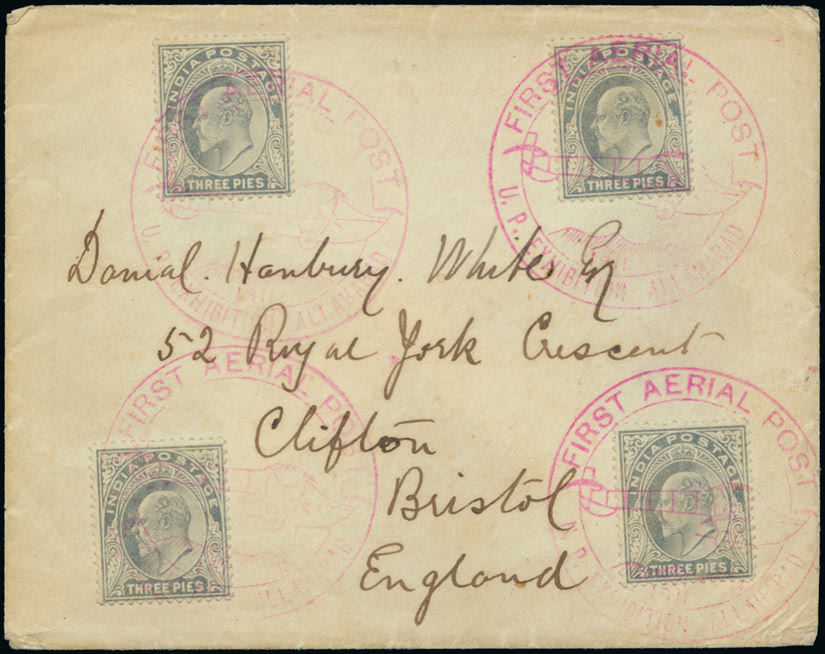 INDIA POSTAGE
THREE PIES
FIRST AERIAL POST
U. P. EXHIBITION ALLAHABAD
1911
INDIA POSTAGE
THREE PIES
FIRST AERIAL POST
U. P. EXHIBITION ALLAHABAD
Danial. Hanbury. White Esq
52 Royal York Crescent
Clifton
Bristol
England
FIRST AERIAL POST
ALLAHABAD
INDIA POSTAGE
THREE PIES
FIRST AERIAL POST
U. P. EXHIBITION ALLAHABAD
1911
INDIA POSTAGE
THREE PIES